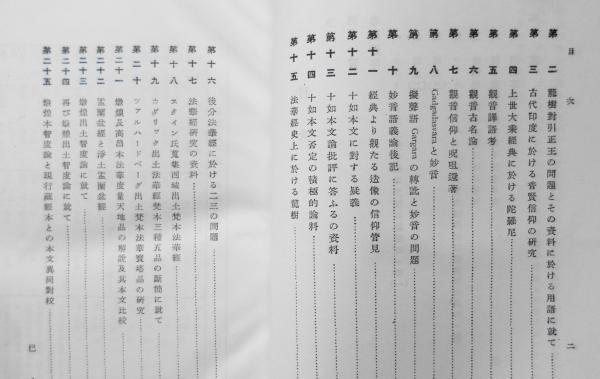 目次
第二 龍樹對引正王の問題とその資料に於ける用語に就て
第三 古代印度に於ける普賢信仰の研究
第四 上世大乘經典に於ける陀羅尼
第五 觀音譯語考
第六 觀音古名論
第七 觀音信仰と呪咀還著
第八 Gadgadasvaraと妙音
第九 擬聲語 Gargara の轉訛と妙音の問題
第十 妙音語義論後記
第十一 經典より觀たる法像の信仰管見
第十二 十如本文に對する疑義
第十三 十如本文論批評に答ふるの資料
第十四 十如本文否定の積極的論料
第十五 法華經史上に於ける龍樹
二
第十六 後分法華經に於ける二三の問題
第十七 法華經研究の資料
第十八 スタイン氏蒐集西域出土梵本法華經
第十九 カダリック出土法華經梵本三種五品の斷簡に就て
第二十 ツアルハードベーグ出土梵本法華寶塔品の研究
第二十一 燉煌及高昌本法華度量天地品の解說及其本文比較
第二十二 盂蘭盆經と淨土盂蘭盆經
第二十三 燉煌出土智度論に就て
第二十四 再び燉煌出土智度論に就て
第二十五 燉煌本智度論と現行藏經本との本文異同對校